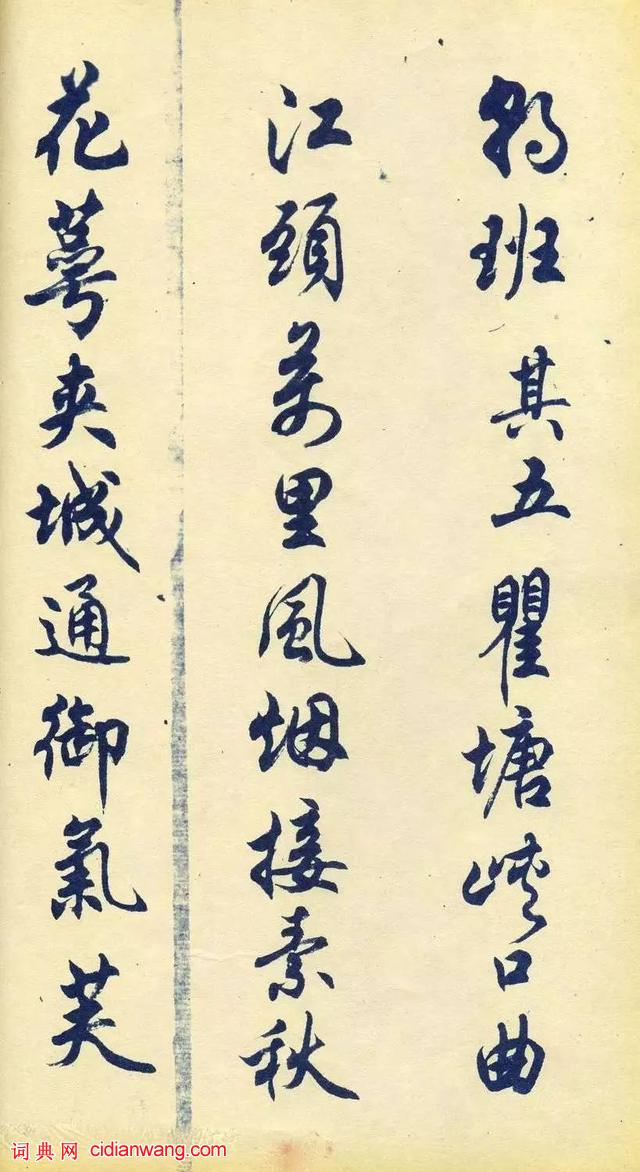 朝班其五瞿塘峽口曲
江頭萬里風烟接素秋
花萼夾城通御氣芙
词典网 cidianwang.com